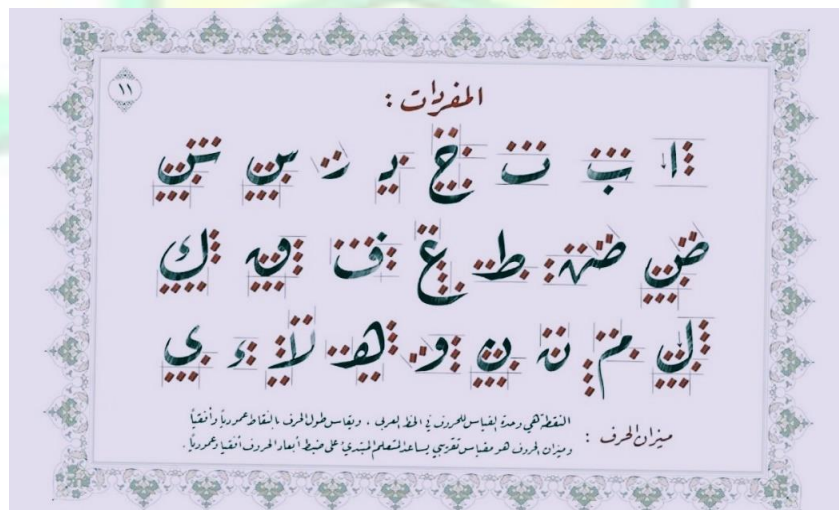 ١١
المفردات :
ا ب ت ج د ر س ش
ض ض ط غ ف ق ك
ل م ن ن و ه لا ء ي
ميزان الحرف :
النقطة هي وحدة القياس للحروف في الخط العربي ، ويقاس طول الحرف بالنقاط عمودياً وأفقياً
وميزان الحروف هو مقياس تقريبي يساعد المتعلم المبتدئ على ضبط أبعاد الحروف أفقياً وعمودياً .